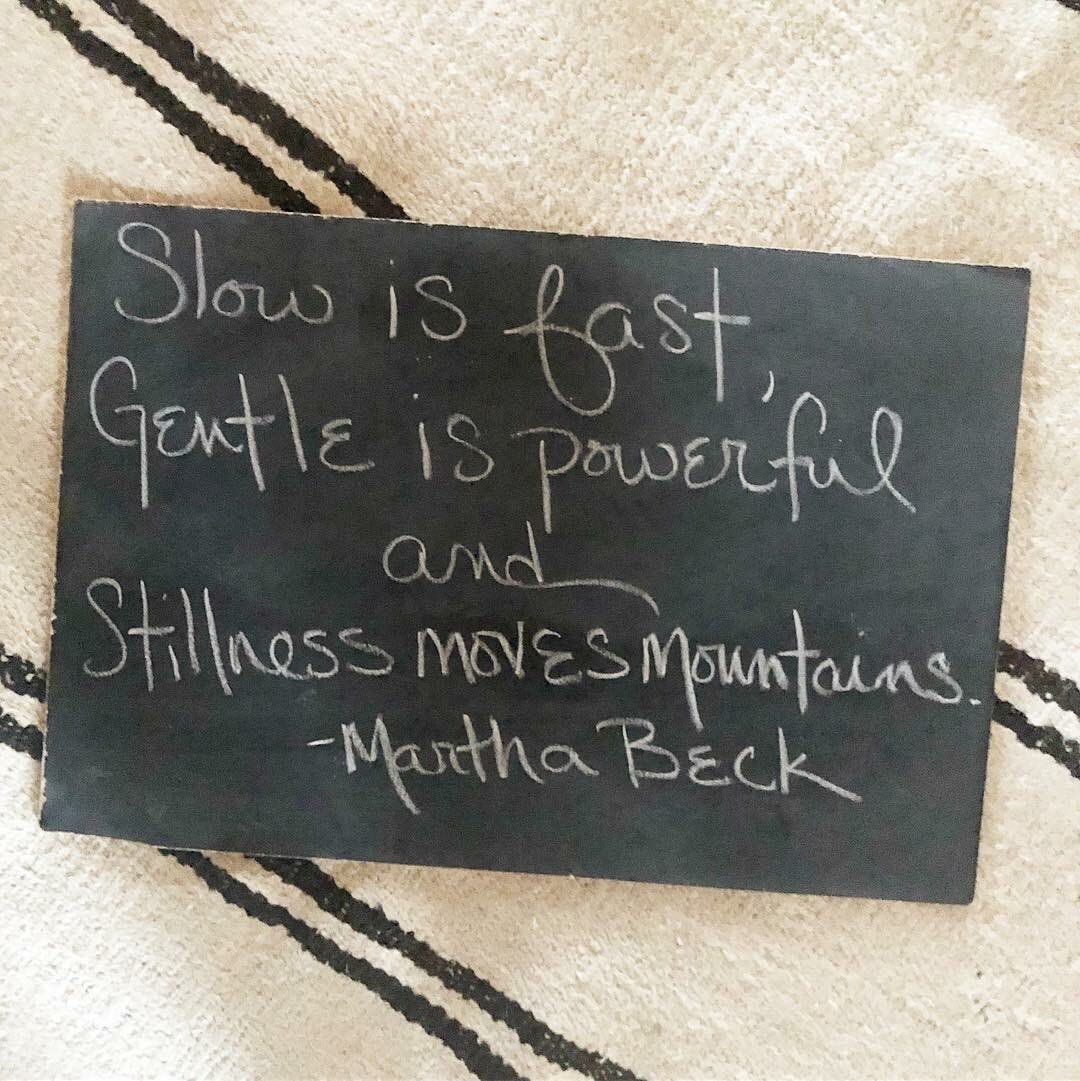 Slow is fast,
Gentle is powerful
and
Stillness moves mountains.
-Martha Beck